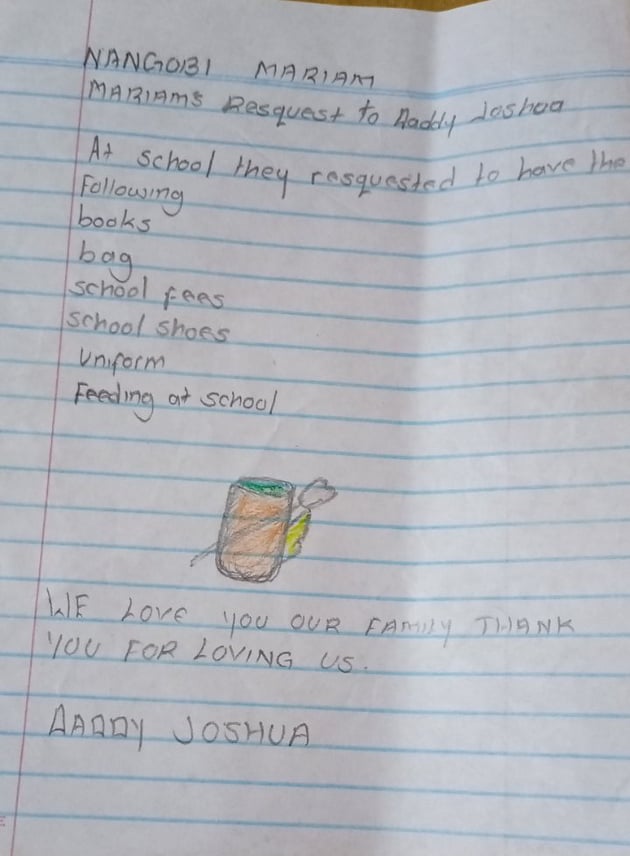 NANGOBI MARIAM
MARIAMS Resquest to Daddy Joshua
At school they resquested to have the
Following
books
bag
school fees
school shoes
Uniform
Feeding at school
WE LOVE YOU OUR FAMILY THANK
YOU FOR LOVING US.
DADDY JOSHUA